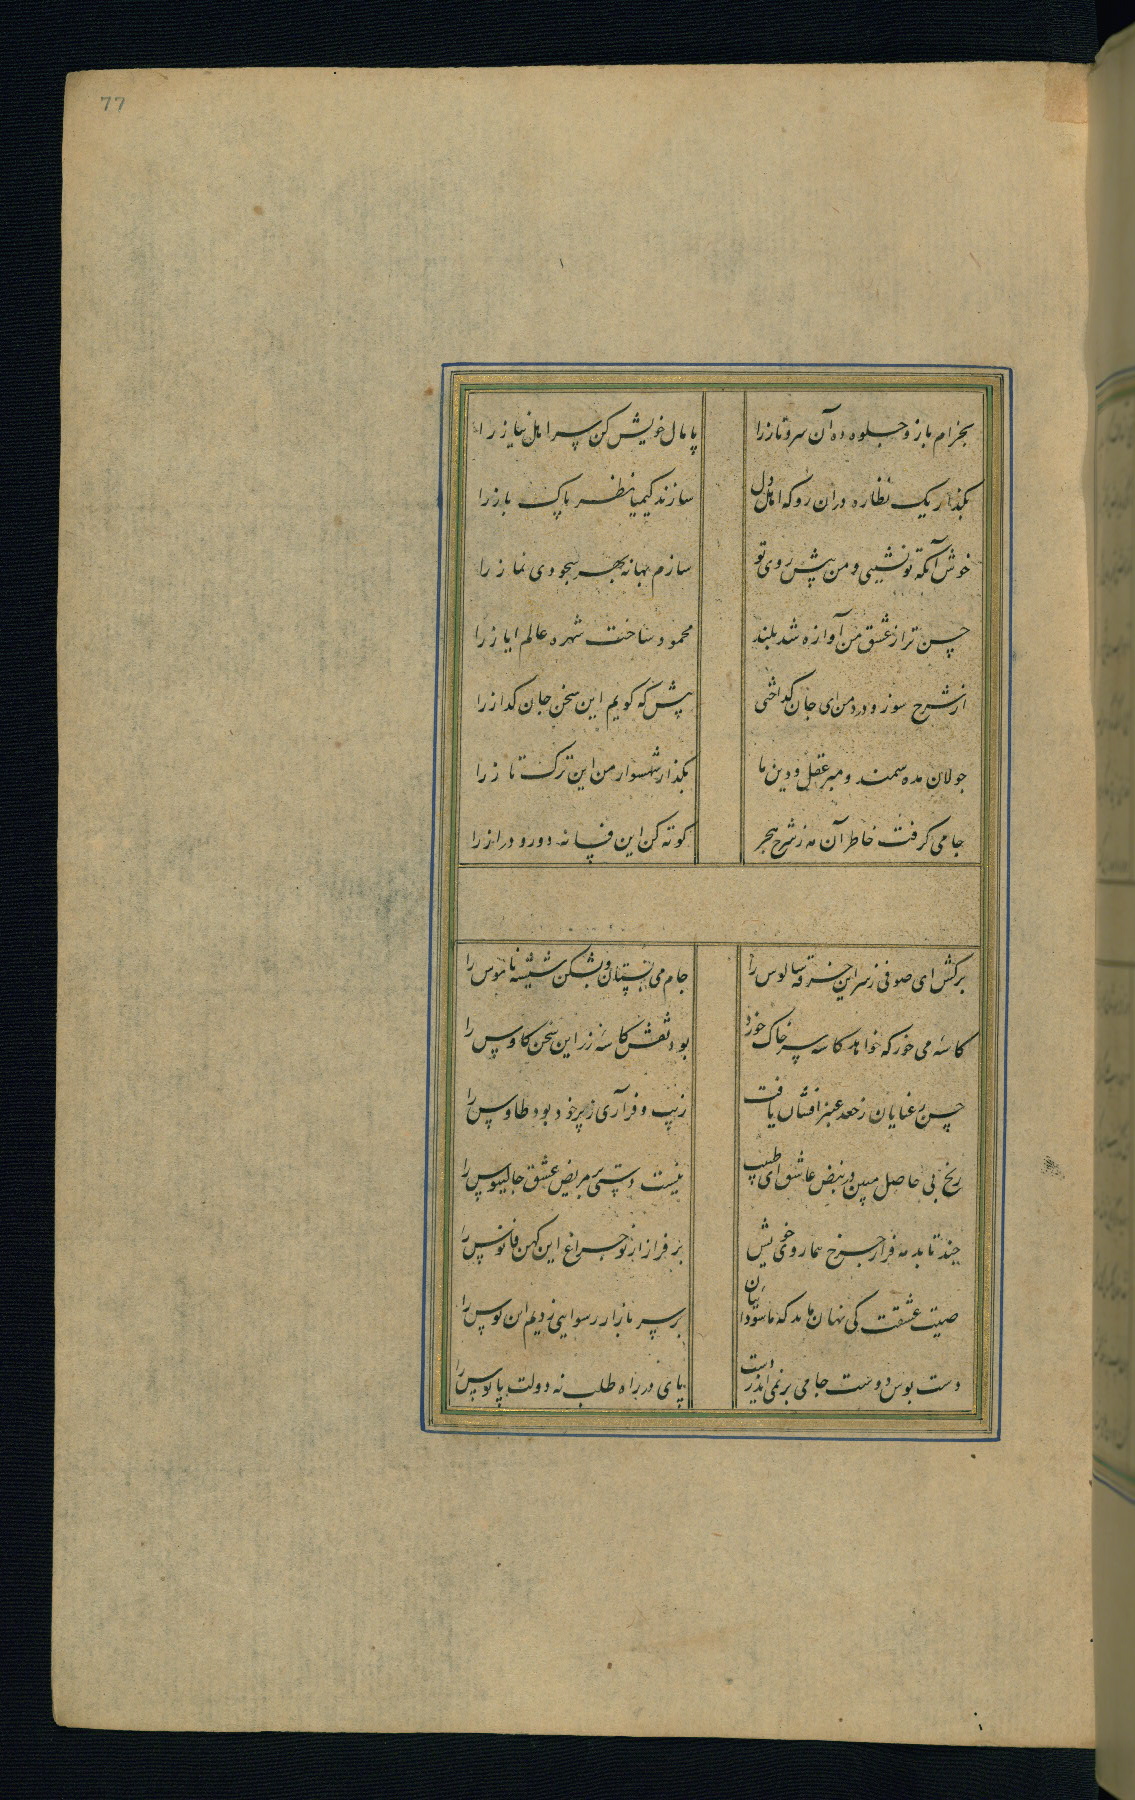 77
بخرام باز و جلوه ده آن سرو ناز را
پامال خویش کن سر اهل نیاز را
بگذار یک نظاره دران رو که اهل دل
سازند کیمیا نظر پاک باز را
خوش آنکه تو نشینی و من پیش روی تو
سازم بهانه بهر سجودی نماز را
حسن ترا ز عشق من آوازه شد بلند
محمود ساخت شهره عالم ایاز را
از شرح سوز و درد من ای جان گداختی
پیش که گویم این سخن جان گداز را
جولان مده سمند و مبر عقل و دین ما
بگذار شهسوار من این ترک تاز را
جامی گرفت خاطر آن مه ز شرح هجر
کوته کن این فسانه دور و دراز را
برکش ای صوفی ز سر این خرقه سالوس را
جام می بستان و بشکن شیشه ناموس را
کاسه می خور که خواهد کاسه سر خاک خورد
بود نقش کاسه زر این سخن کاوس را
حسن رعنایان ز جعد عنبر افشان یافت
زیب و فر آری ز پر خود بود طاوس را
رنج بی حاصل مبین در نبض عاشق ای طبیب
نیست دستی بر مریض عشق جالینوس را
چند تابد مه فراز چرخ بنما روی خویش
بر فراز از نو چراغ این کهن فانوس را
صیت عشقت کی نهان ماند که ما سوداییان
بر سر بازار رسوایی زدیم این کوس را
دست بوس دوست جامی بر نمی آید ز دست
پای در راه طلب نه دولت پابوس را